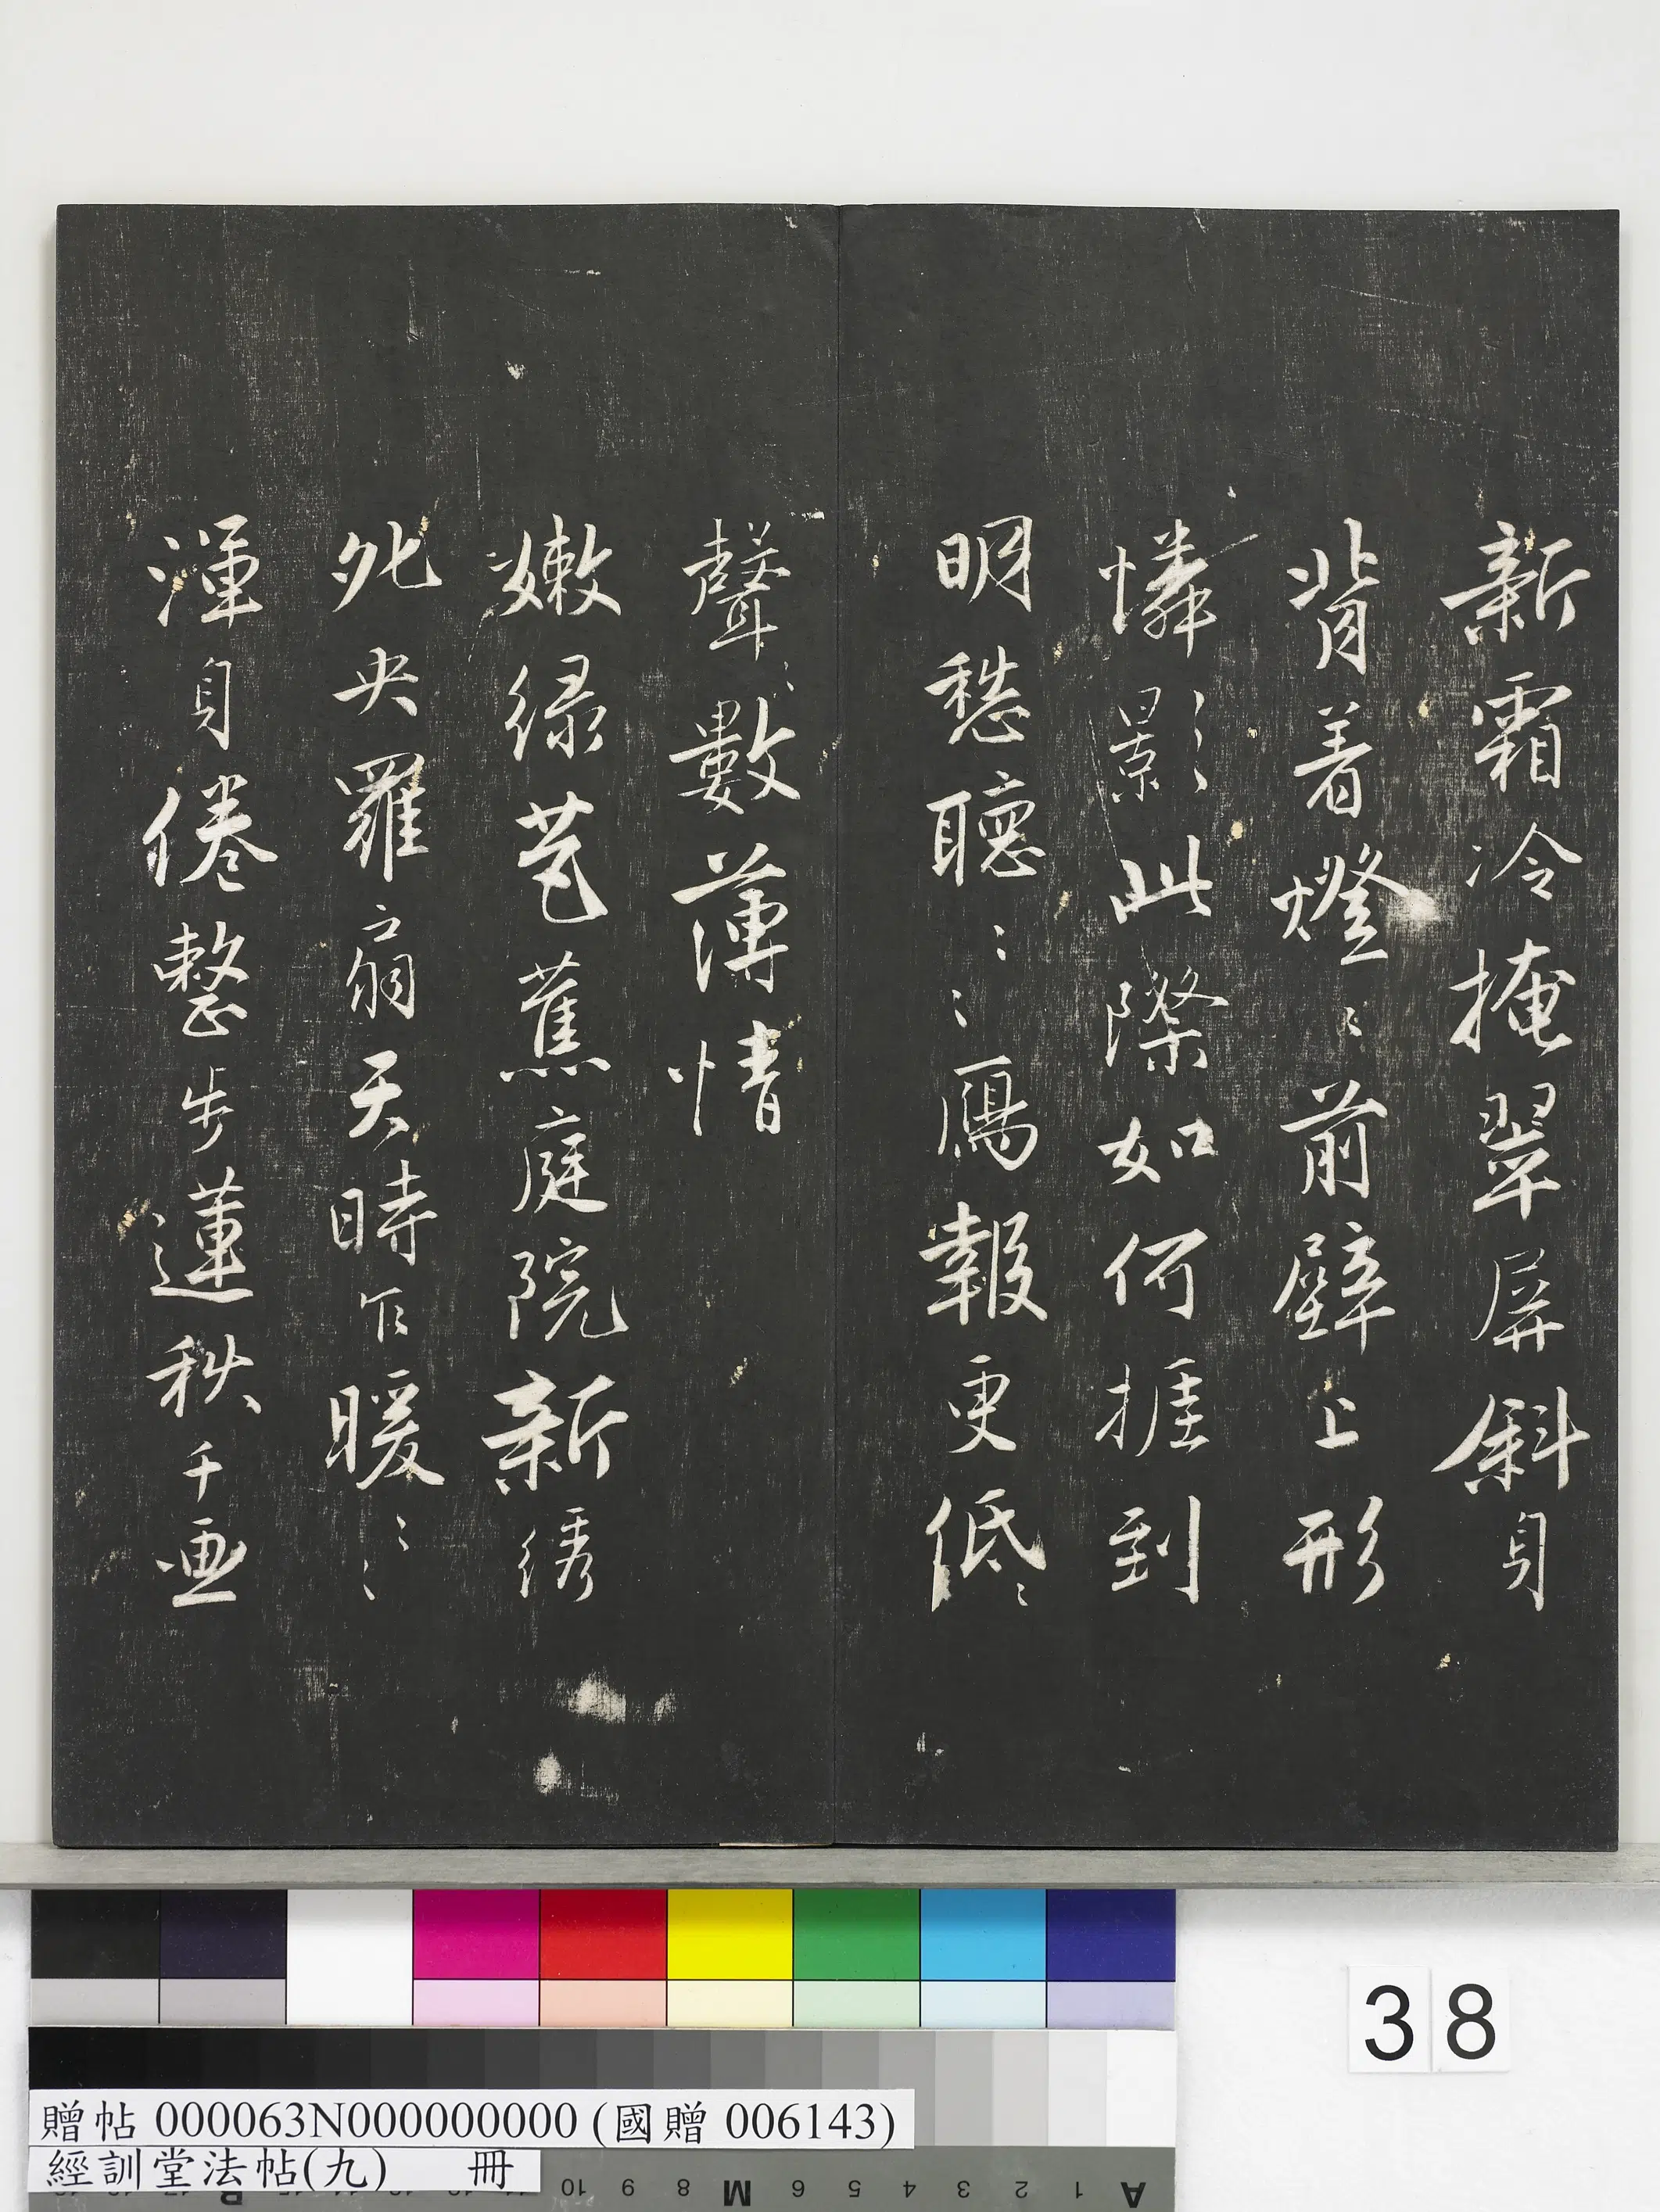 新霜冷掩翠屏斜身
背着燈〻前壁上形
憐影此際如何捱到
明愁聽〻〻鴈報更低〻
聲〻數薄情
嫩綠芭蕉庭院新綉
夗央羅扇天時乍暖〻〻
渾身倦整步蓮秋千画
38
贈帖 000063N000000000 (國贈 006143)
經訓堂法帖(九) 冊
A 1 2 3 4 5 6 M 8 9 10